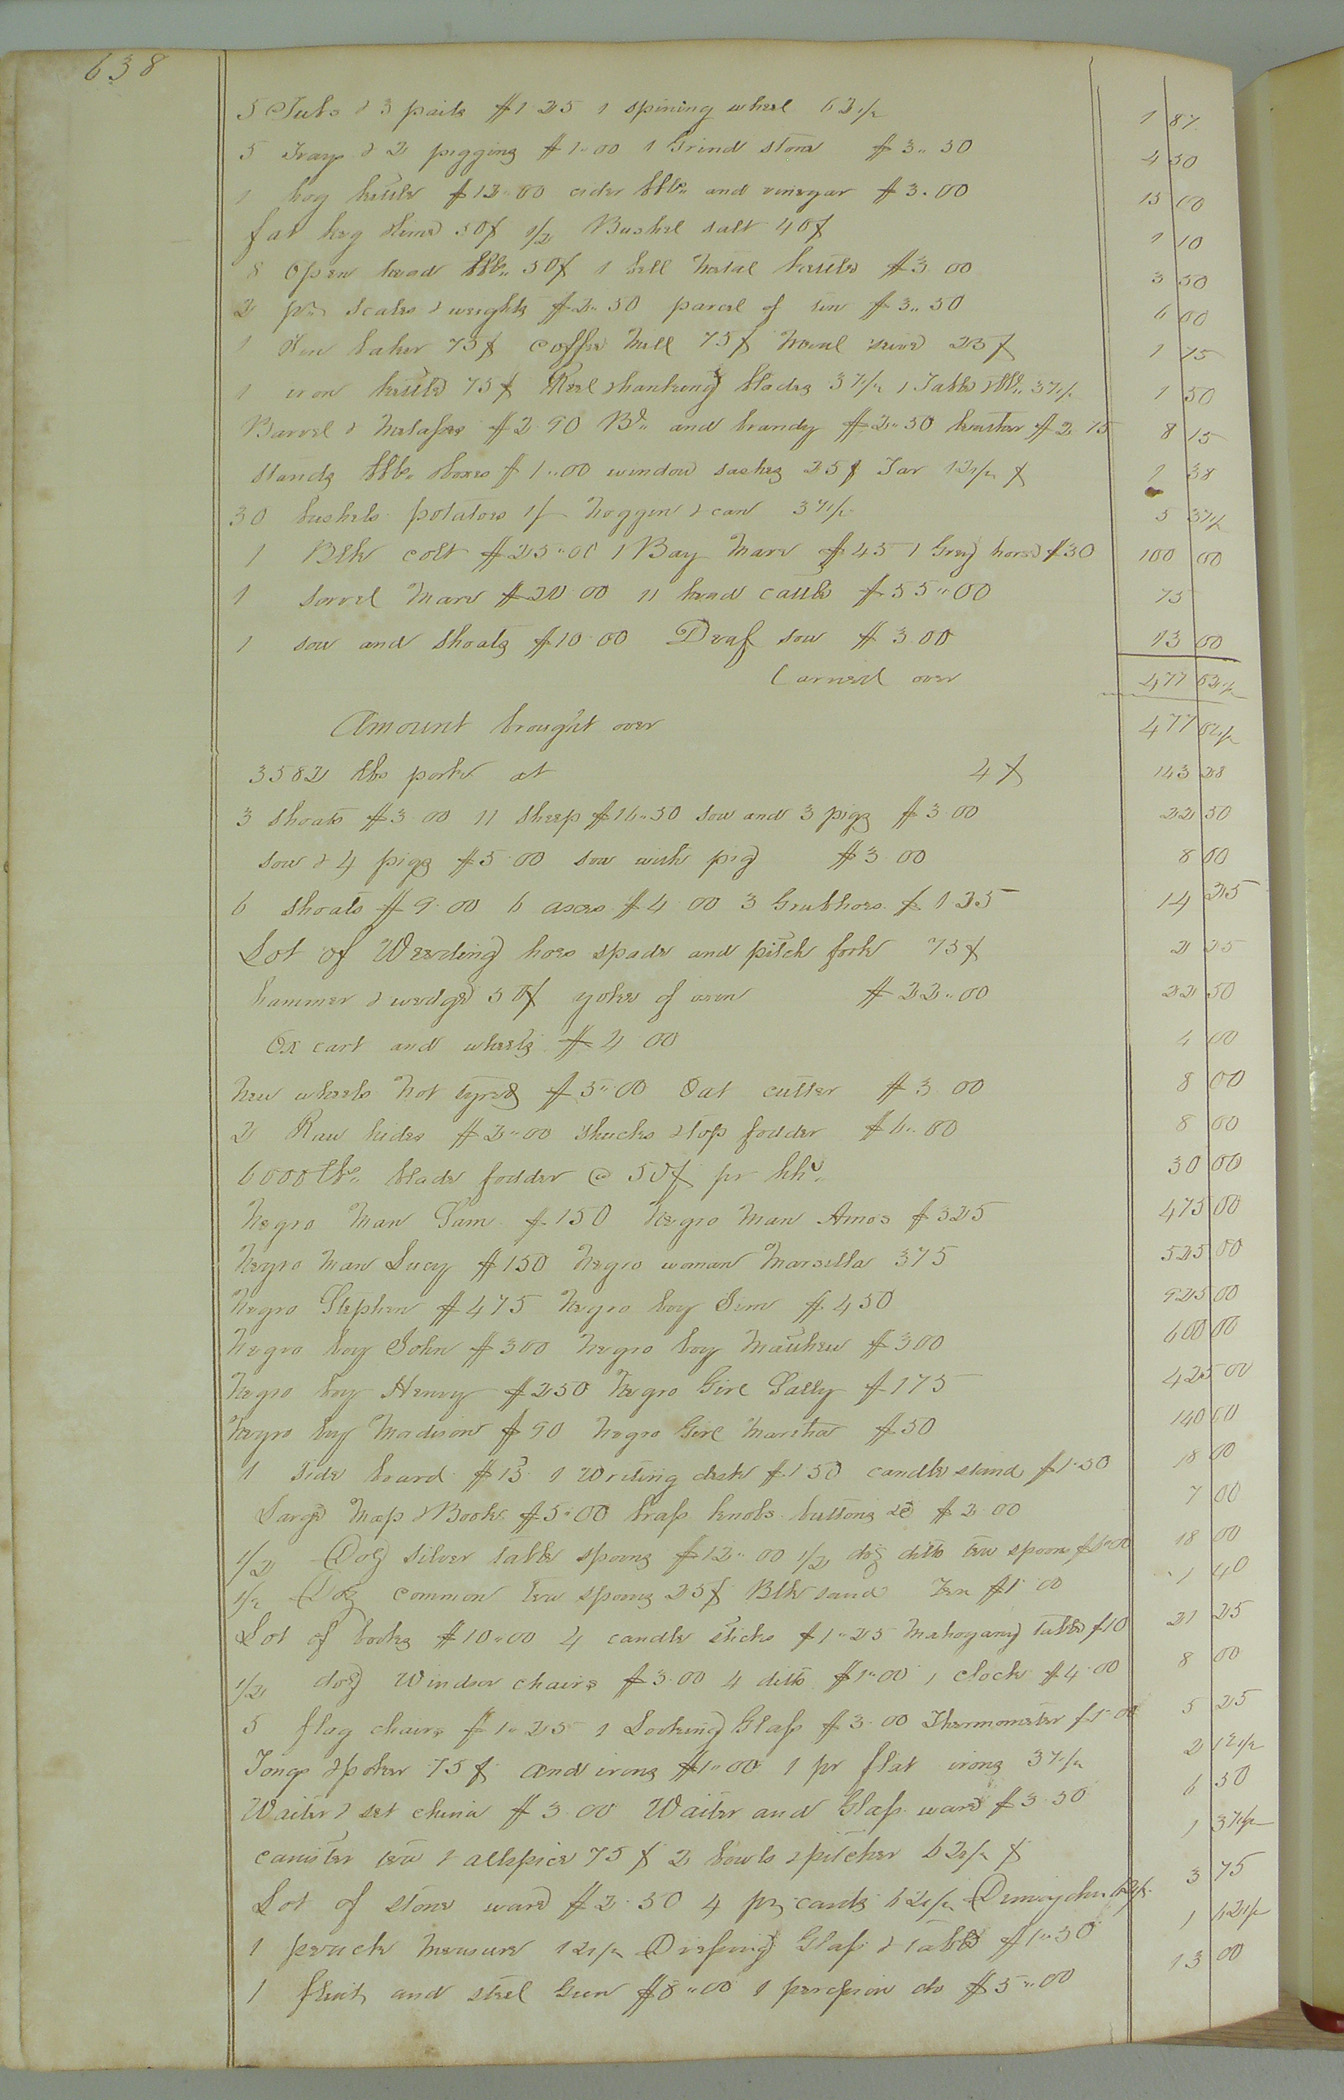 638
5 Tubs & 3 pails $1.25 1 spining wheel 62 1/2 1 87
5 Trays & 2 piggins $1.00 1 Grind stone $3.50 4 50
1 hog kettle $12.00 cider bbls and vinegar $3.00 15 00
fat keg lime 50¢ 1/2 Bushel salt 40¢ 1 10
8 Open head bbls 50¢ 1 bell metal kettle $3 00 3 50
2 prs scales & weights $2.50 parcel of $3.50 6 00
1 tin baker 75¢ coffee mill 75¢ meal seive 25¢ 1 75
1 iron kettle 75¢ Reel & hanking blades 37 1/2 1 Table &bbl 37 1/2 1 50
Barrel & Molasses $2 90 Bbl and brandy $2.50 $2 75 8 15
stands bbls & boxes $1.00 window sashes 25¢ Tar 12 1/2¢ 1 38
30 bushels potatoes noggin & can 37 1/2 5 37 1/2
1 Blk colt $25.00 1 Bay Mare $45 1 Grey horse $30 100 00
1 sorrel mare $20 00 11 head cattle $55.00 75
1 sow and shoats $10 00 Deaf sow $3.00 13 00
Carried over 477 62 1/2
Amount brought over 477 62 1/2
3582 lbs pork at 4¢ 143 28
3 shoats $3 00 11 sheep $16.50 sow and 3 pigs $3 00 22 50
sow & 4 pigs $5 00 sow with pig $3 00 8 00
6 shoats $9.00 6 axes $4 00 3 Grubhoes $1 25 14 25
Lot of Weeding hoes spade and pitch fork 75¢ 2 25
hammer & wedge 50¢ yoke of oxen $22.00 22 50
Ox cart and wheels $4 00 4 00
New wheels not tyred $5.00 Oat cutter $3 00 8 00
2 Raw hides $2.00 shucks & top fodder $6.00 8 00
6000 lbs blade fodder @ 50¢ pr hhd 30 00
Negro Man Sam $150 Negro Man Amos $325 475 00
Negro Man Lucy $150 Negro woman Marsilla 375 525 00
Negro Stephen $475 Negro boy Jim $450 925 00
Negro boy John $300 Negro boy Mathew $300 600 00
Negro boy Henry $250 Negro Girl Sally $175 425 00
Negro boy Madison $90 Negro Girl Martha $50 140 00
1 side board $15 1 Writing desk $1 50 candle stand $1.50 18 00
Large Map & Book $5.00 brass knobs buttons &c $2 00 7 00
1/2 Doz silver table spoons $12.00 1/2 doz ditto tea spoons $6.00 18 00
1/2 Doz common tea spoons 25¢ Blk sand $1 00 1 40
Lot of books $10.00 4 candle sticks $1.25 Mahogany table $10 21 25
1/2 doz Windsor chairs $3.00 4 ditto $1.00 1 clock $4.00 8 00
5 flag chairs $1.25 1 Looking Glass $3.00 Thermometer $1.00 5 25
Tongs & poker 75¢ and irons $1.00 1 pr flat irons 37 1/2 2 12 1/2
Waiter & set china $3.00 Waiter and Glass ware $3 50 6 50
canister tea & allspice 75¢ 2 bowls & pitcher 62 1/2¢ 1 37 1/2
Lot of stone ware $2.50 4 pr cards 62 1/2 62 1/2 3 75
1 measure 12 1/2 Dressing Glass & table $1.50 1 62 1/2
1 flint and steel Gun $8.00 1 do $5.00 13 00